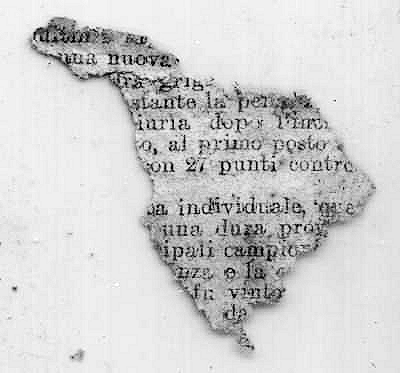 una nuova
grig
stante la
iuria dopo l'in
o, al primo posto
on 27 punti contro
a individuale, que
una dura pro
ipali campio
nza e la
fu vinto
da